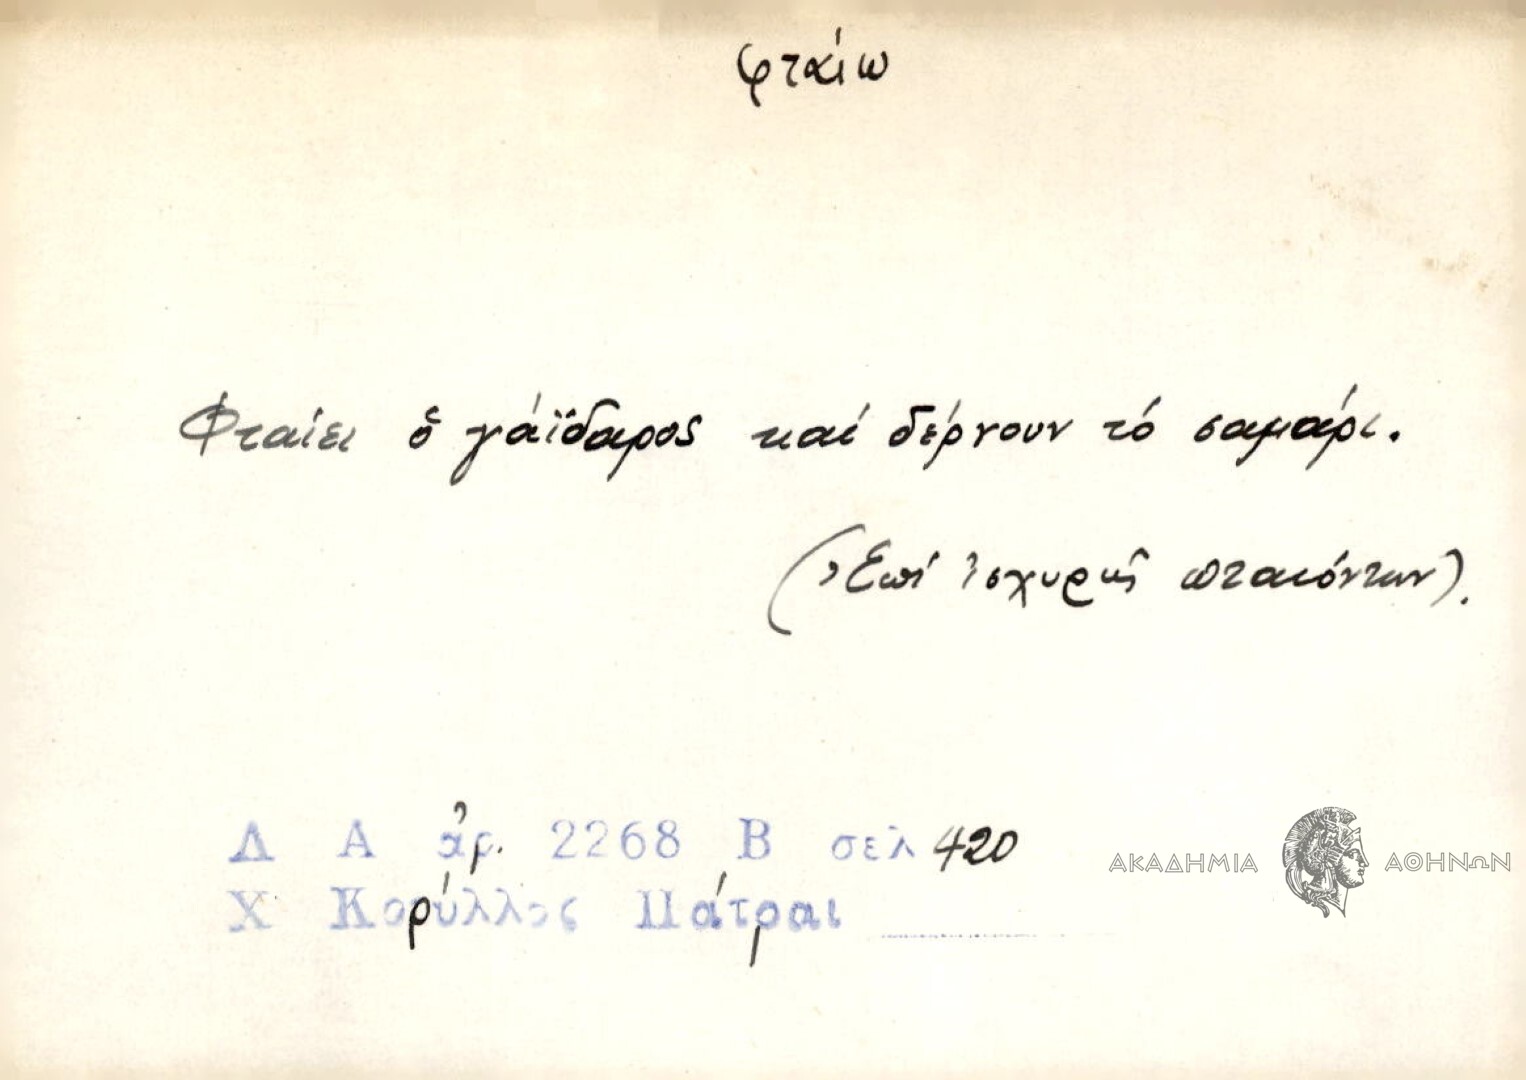 φταίω
Φταίει ὁ γάϊδαρος καί δέρνουν τό σαμάρι.
(Ἐπί ἰσχυρῶς πταιόντων).
Δ Α ἀρ. 2268 Β σελ 420
Χ Κορύλλος Πάτραι
ΑΚΑΔΗΜΙΑ ΑΘΗΝΩΝ